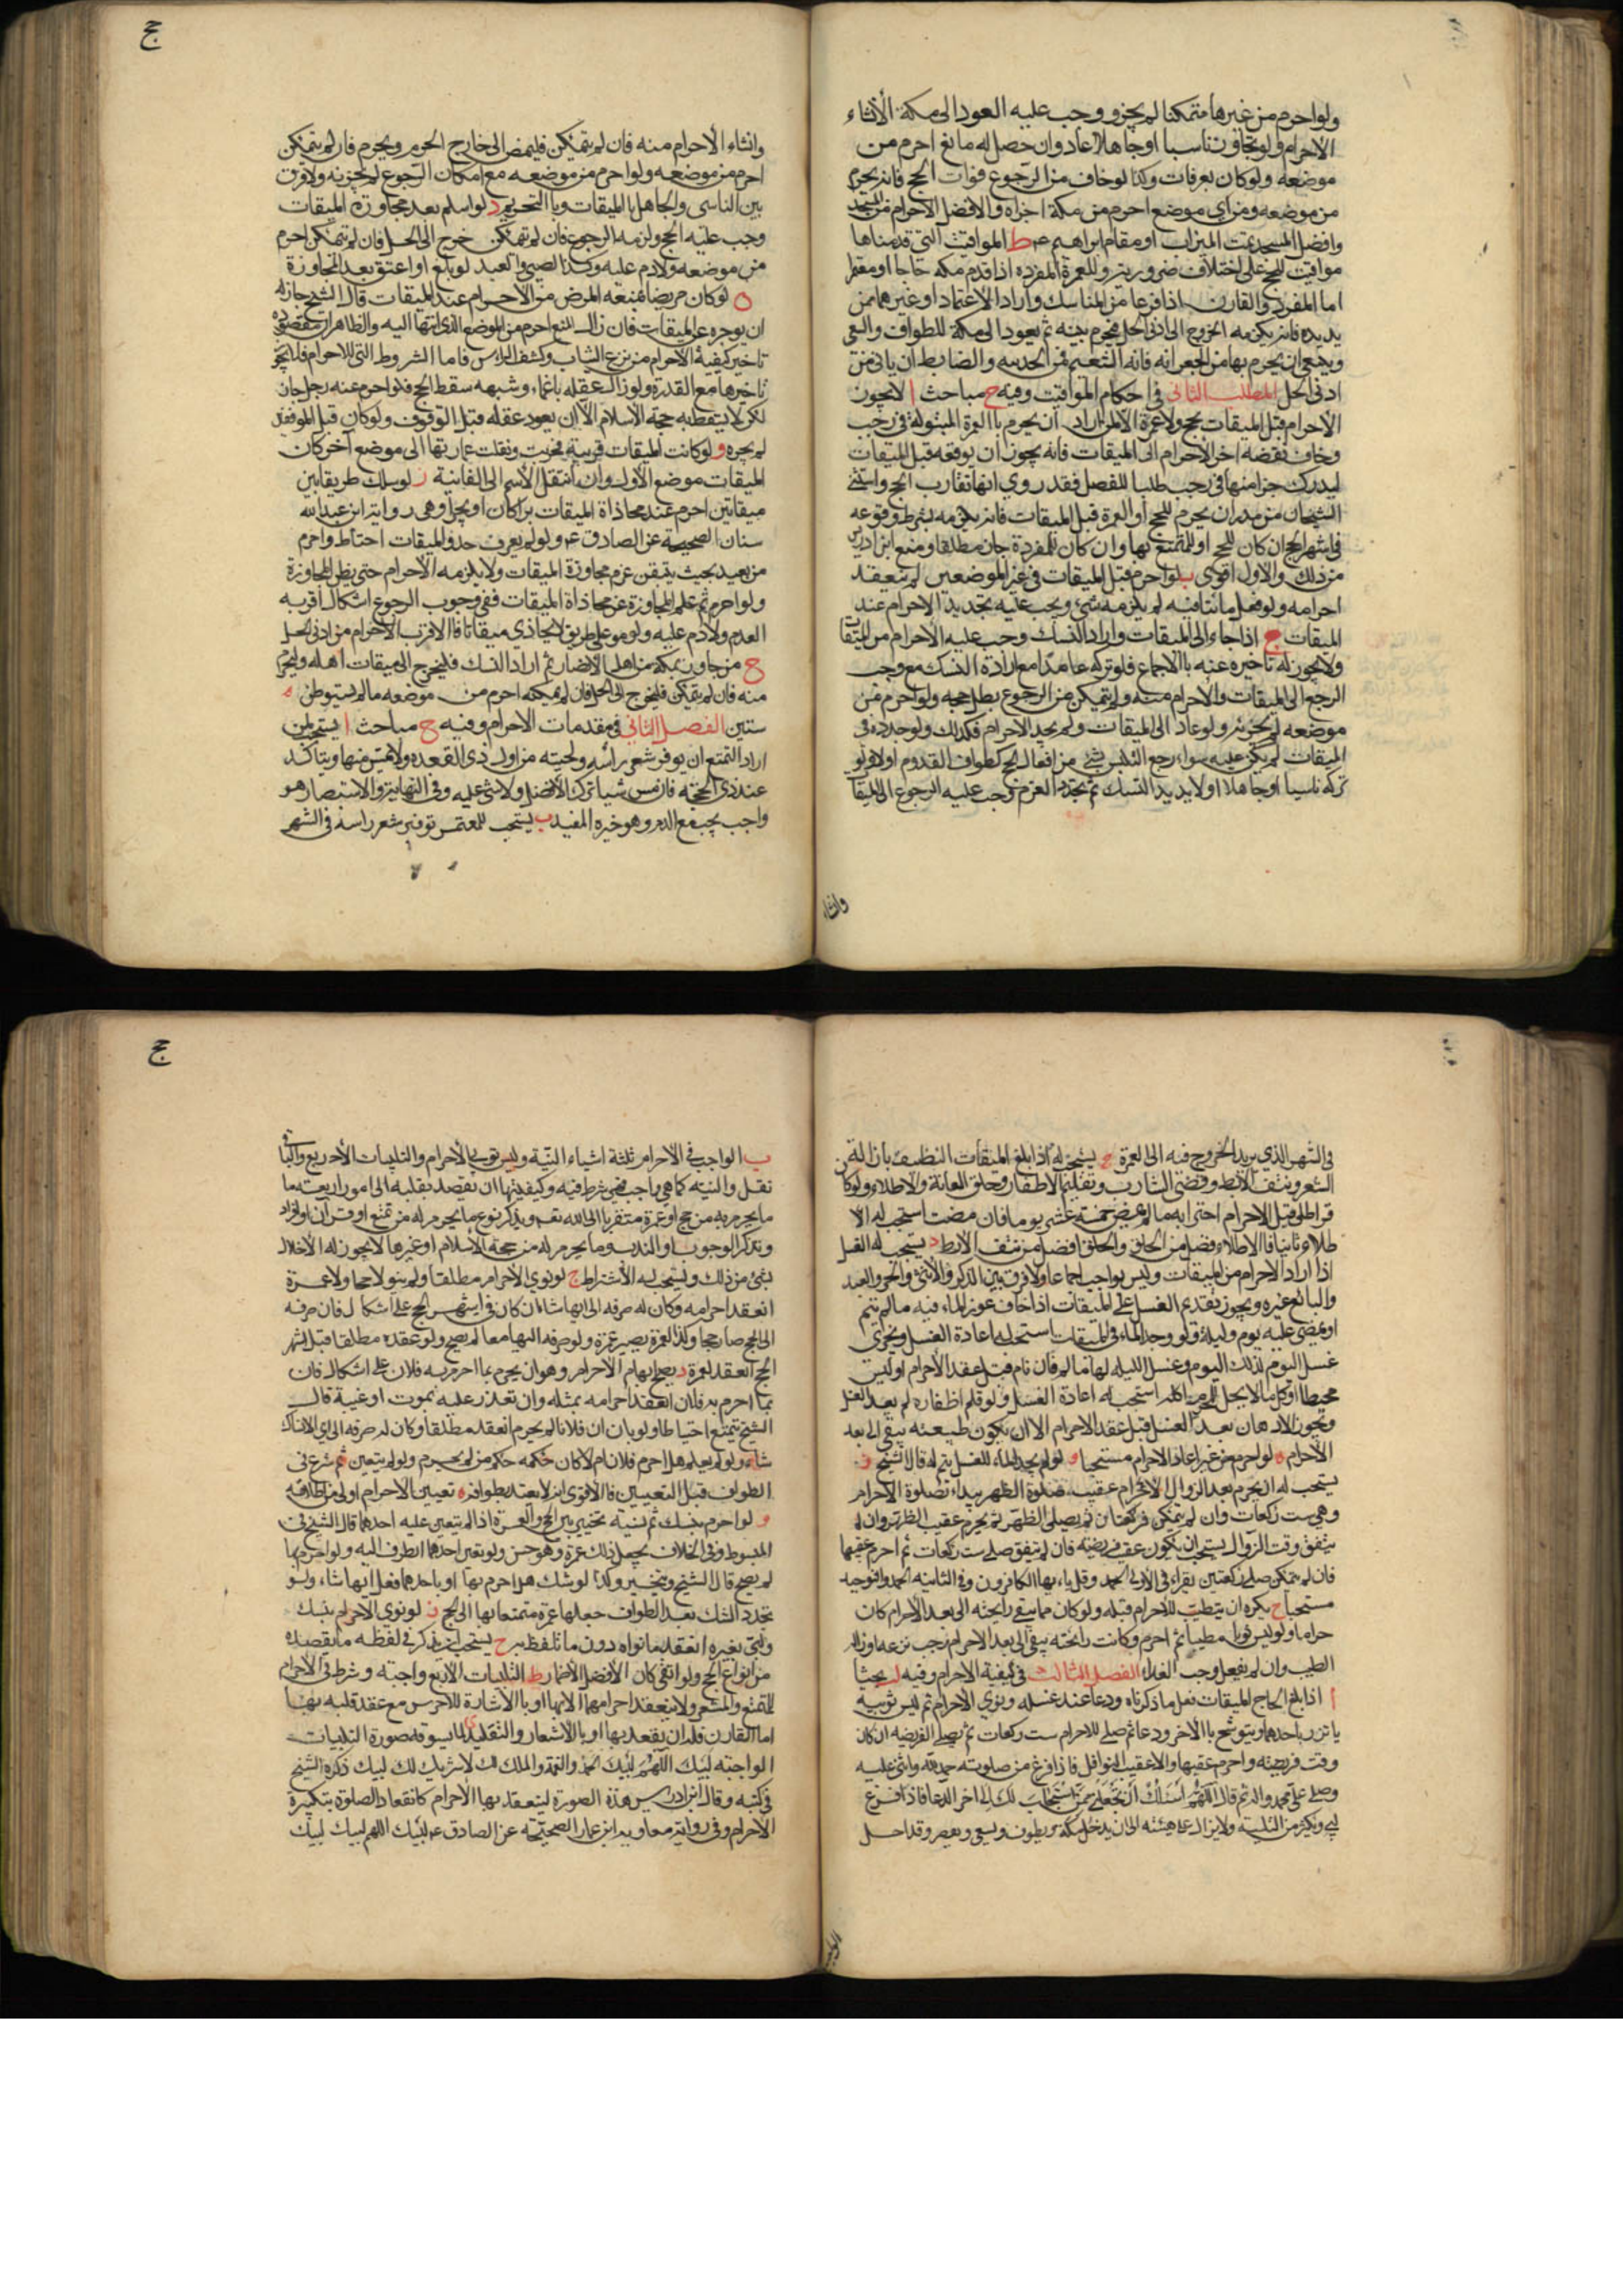 ولو احرم من غيرها متمكنا لم يجز ووجب عليه العود الى مكة لانشاء
الاحرام ولو تجاوز ناسيا او جاهلا عاد وان حصل له مانع احرم من
موضعه ولو كان بعرفات وكذا لو خاف من الرجوع فوات الحج فانه يحرم
من موضعه ومن اي موضع احرم من مكة اجزاه والافضل الاحرام من المسجد
وافضل المسجد تحت الميزاب او مقام ابراهيم عم ط المواقيت التي قدمناها
مواقيت للحج على اختلاف ضروبه وللعمرة المفردة اذا قدم مكة حاجا او معتمرا
اما المفرد والقارن اذا فرغا من المناسك وارادا الاعتماد او غيرهما ممن
يريده فانه يلزمه الخروج الى ادنى الحل فيحرم منه ثم يعود الى مكة للطواف والسعي
وينبغي ان يحرم بها من الجعرانه فانه التنعيم فمن الحدسه والضابط ان ياتي من
ادنى الحل المطلب الثاني في احكام المواقيت وفيه ح مباحث ا لا يجوز
الاحرام قبل الميقات بحج ولا عمرة الا لمن اراد ان يحرم بالعمرة المبتولة في رجب
وخاف تقضيه اخر الاحرام الى الميقات فانه يجوز ان يوقعه قبل الميقات
ليدرك جزا منها في رجب طلبا للفضل فقد روي انها تقارب الحج واستثنى
الشيخان من نذر ان يحرم للحج او العمرة قبل الميقات فانه يلزمه بشرط وقوعه
في اشهر الحج ان كان للحج او للمتمتع بها وان كان للمفردة جاز مطلقا ومنع ابن ادريس
من ذلك والاول اقوى ب لو احرم قبل الميقات في غير الموضعين لم ينعقد
احرامه ولو فعل ما ينافيه لم يلزمه شئ ويجب عليه تجديد الاحرام عند
الميقات ج اذا جاء الى الميقات واراد النسك وجب عليه الاحرام من الميقات
ولا يجوز له تاخيره عنه بالاجماع فلو تركه عامدا مع ارادة النسك مع وجب
الرجع الى الميقات والاحرام منه ولو لم يتمكن من الرجوع بطل حجه ولو احرم من
موضعه لم يجزئه ولو عاد الى الميقات ولم يجدد الاحرام فكذلك ولو جدده في
الميقات لم يكن عليه سواء رجع التلبس بشئ من افعال الحج كطواف القدوم اولا ولو
تركه ناسيا او جاهلا او لا يريد النسك ثم تجدد العزم وجب عليه الرجوع الى الميقات
وانشاء
ج
وانشاء الاحرام منه فان لم يتمكن فليمض الى خارج الحرم ويحرم فان لم يتمكن
احرم من موضعه ولو احرم من موضعه مع امكان الرجوع لم يجزئه ولا فرق
بين الناسي والجاهل بالميقات وبالتحريم د لو اسلم بعد مجاوزة الميقات
وجب عليه الحج ولزمه الرجوع فان لم يتمكن خرج الى الحل فان لم يتمكن احرم
من موضعه ولا دم عليه وكذا الصبي والعبد لو بلغ او اعتق بعد المجاوزة
ه لو كان مريضا فمنعه المرض من الاحرام عند الميقات قال الشيخ جاز له
ان يوخره عن الميقات فان زال المنع احرم من الموضع الذي انتها اليه والظاهر ان مقصوده
تاخير كيفية الاحرام من نزع الثياب وكشف الراس فاما الشروط التي للاحرام فلا يجوز
تاخيرها مع القدرة ولو زال عقله باغماء وشبهه سقط الحج فلو احرم عنه رجل جاز
لكن لا يسقط به حجة الاسلام الا ان يعود عقله قبل الوقوف ولو كان قبل الموقف
لم يجزه و لو كانت الميقات قرية فخربت ونقلت عمارتها الى موضع آخر كان
الميقات موضع الاول وان انتقل الاسم الى الثانية ز لو سلك طريقا بين
ميقاتين احرم عند محاذاة الميقات برا كان او بحرا وهي رواية ابن عبد الله
سنان الصحيحة عن الصادق عم ولو لم يعرف حذو الميقات احتاط واحرم
من بعيد بحيث يتيقن عدم مجاوزة الميقات ولا يلزمه الاحرام حتى يظن المجاوزة
ولو احرم ثم علم المجاوزة عن محاذاة الميقات ففي وجوب الرجوع اشكال اقربه
العدم ولا دم عليه ولو مر على طريق لا يحاذي ميقاتا فالاقرب الاحرام من ادنى الحل
ح من جاور بمكة من اهل الامصار ثم اراد النسك فليخرج الى ميقات اهله وليحرم
منه فان لم يتمكن فليخرج الى الحل فان لم يمكنه احرم من موضعه ما لم يستوطن
سنتين الفصل الثاني في مقدمات الاحرام وفيه ح مباحث ا يستحب لمن
اراد التمتع ان يوفر شعر راسه ولحيته من اول ذي القعده ولا يمس منها ويتاكد
عند ذي الحجة فان مس شيا ترك الافضل ولا شئ عليه وفي النهاية والاستبصار هو
واجب يجب مع الدم وهو خيره المفيد ب يستحب للمعتمر توفير شعر راسه في الشهر
في الشهر الذي يريد الخروج فيه الى العمرة ج يستحب له اذا بلغ الميقات التنظيف بازالة
الشعر ونتف الابط وقص الشارب وتقليم الاظفار وحلق العانة والاطلاء ولو كان
قد اطلى قبل الاحرام اجتزا به ما لم يمض خمسة عشر يوما فان مضت استحب له الا
طلاء ثانيا فالاطلاء افضل من الحلق والحلق افضل من نتف الابط د يستحب له الغسل
اذا اراد الاحرام من الميقات وليس بواجب اجماعا ولا فرق بين الذكر والانثى والحر والعبد
والبالغ غيره ويجوز تقديم الغسل على الميقات اذا خاف عوز الماء فيه ما لم ينم
او يمضي عليه يوم وليلة ولو وجد الماء في الميقات استحب له اعادة الغسل ويجزي
غسل اليوم لذلك اليوم وغسل الليلة لها ما لم ينم فان نام قبل عقد الاحرام او لبس
مخيطا او اكل ما لا يحل للمحرم اكله استحب له اعادة الغسل ولو قلم اظفاره لم يعد الغسل
ويجوز الادهان بعد الغسل قبل عقد الاحرام الا ان يكون طيبه يبقى الى بعد
الاحرام ه لو احرم من غير غسل اعاد الاحرام مستحبا و لو لم يجد الماء للغسل يتم له قال الشيخ ز
يستحب له ان يحرم بعد الزوال الاحرام عقيب صلوة الظهر يبدا بصلوة الاحرام
وهي ست ركعات وان لم يتمكن فركعتان ثم يصلي الظهر ثم يحرم عقيب الظهر وان لم
يتفق وقت الزوال يستحب ان يكون عقيب فريضه فان لم يتفق صلى ست ركعات ثم احرم عقيبها
فان لم يتمكن صلى ركعتين يقراء في الاولى الحمد وقل يا ايها الكافرون وفي الثانيه الحمد والتوحيد
مستحبا ح يكره ان يتطيب للاحرام قبله ولو كان مما يبقى رايحته الى بعد الاحرام كان
حراما ولو لبس ثوبا مطيبا ثم احرم وكانت رائحته يبقى الى بعد الاحرام وجب نزعه او ازالة
الطيب وان لم يفعل وجب الفداء الفصل الثالث في كيفية الاحرام وفيه يحثا
ا اذا بلغ الحاج الميقات فعل ما ذكرناه ودعا عند غسله ونوى الاحرام ثم لبس ثوبيه
ياتزر باحدهما ويتوشح بالاخر ودعا ثم صلى للاحرام ست ركعات ثم يصلي الفريضه ان كان
وقت فريضته واحرم عقيبها والا عقيب النوافل فاذا فرغ من صلوته حمد الله واثنى عليه
وصلى على محمد واله ثم قال اللهم اني اسئلك ان تجعلني ممن استجاب لك الى اخر الدعا فاذا فرغ
لبى ويكثر من التلبية ولا يزال على هيئته الى ان يدخل مكة ويطوف ويسعى ويقصر وقد احل
ج
ب الواجب في الاحرام ثلثة اشياء النية ولبس ثوبي الاحرام والتلبيات الاربع والباقي
نفل والنيه كما هي واجب فهي شرط فيه وكيفيتها ان يقصد بقلبه الى امور اربعة ما
ما يحرم به من حج او عمرة متقربا الى الله تعم ويذكر نوع ما يحرم له من تمتع او قران او افراد
ويذكر الوجوب او الندب وما يحرم له من حجة الاسلام او غيرها لا يجوز له الاخلال
بشئ من ذلك ويستحب له الاشتراط ج لو نوى الاحرام مطلقا ولم ينو لا حجا ولا عمرة
انعقد احرامه وكان له صرفه الى ايهما شاء ان كان في اشهر الحج على اشكال فان صرفه
الى الحج صار حجا وكذا العمرة يصير عمرة ولو صرفه اليهما معا لم يصح ولو عقده مطلقا قبل اشهر
الحج انعقد لعمرة د يصح ابهام الاحرام وهو ان يحرم بما احرم به فلان على اشكال فان
بما احرم به فلان انعقد احرامه بمثله وان تعذر علمه بموت او غيبة قال
الشيخ يتمتع احتياطا ولو بان ان فلانا لم يحرم انعقد مطلقا وكان له صرفه الى اي الانساك
شاء ولو لم يعلم هل احرم فلان ام لا كان حكمه حكم من لم يحرم ولو لم يتعين ثم شرع في
الطواف قبل التعيين فالاقوى انه لا يعتد بطوافه ه تعيين الاحرام اولى من اطلاقه
و لو احرم بنسك ثم نسيه تخير بين الحج والعمرة اذا لم يتعين عليه احدهما قال الشيخ في
المبسوط وفي الخلاف يجعل ذلك عمرة وهو حسن ولو تعين احدهما انصرف اليه ولو احرم بهما
لم يصح قال الشيخ ويتخير وكذا لو شك هل احرم بهما او باحدهما فعل ايهما شاء ولو
تجدد الشك بعد الطواف جعلها عمرة متمتعا بها الى الحج ز لو نوى الاحرام بنسك
ولبى بغيره انعقد ما نواه دون ما تلفظ به ح يستحب ان يذكر في لفظه ما يقصده
من انواع الحج ولو اتقى كان الافضل الاضمار ط التلبيات الاربع واجبة وشرط في الاحرام
للمتمتع والمفرد ولا ينعقد احرامهما الا بها او بالاشارة للاخرس مع عقد قلبه بها
اما القارن فله ان يعقد بها او بالاشعار والتقليد لما يسوقه ى صورة التلبيات
الواجبة لبيك اللهم لبيك ان الحمد والنعمة والملك لك لا شريك لك لبيك ذكره الشيخ
في كتبه وقال ابن ادريس هذه الصورة ينعقد بها الاحرام كانعقاد الصلوة بتكبيرة
الاحرام وفي رواية معاويه ابن عمار الصحيحة عن الصادق عم لبيك اللهم لبيك لبيك